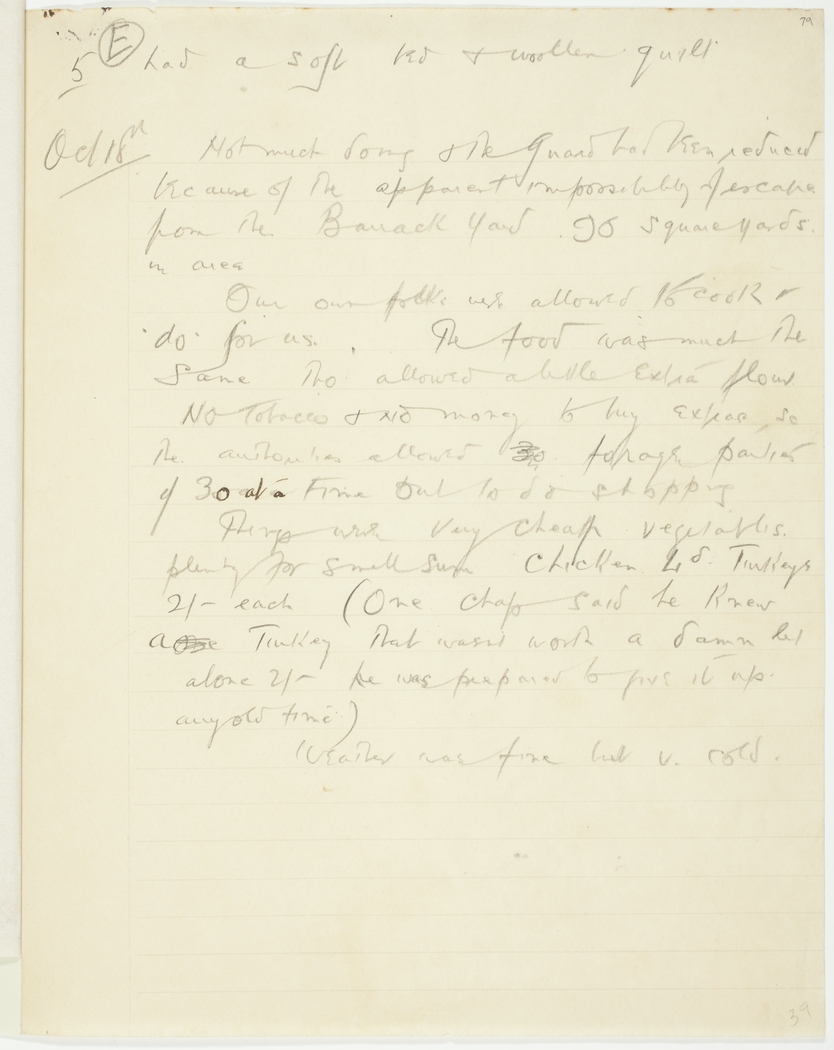 79
5 E had a soft bed & woollen quilt
Oct 18th Not much doing & the Guard had been reduced
because of the apparent impossibility of escape
from the Barrack Yard 90 Square Yards.
in area
Our own folks were allowed to cook &
"do" for us. The food was much the
Same tho allowed a little Extra flour
No Tobacco & no money to buy extras, so
the authorities allowed 30 forage parties
of 30 at a time out to do shopping
Things were very cheap vegetables.
plenty for small sum Chicken 4d. Turkeys
2/- each (One chap said he knew
a One Turkey that wasn't worth a damn let
alone 2/- he was prepared to give it up
any old time)
Weather was fine but v. cold.
39